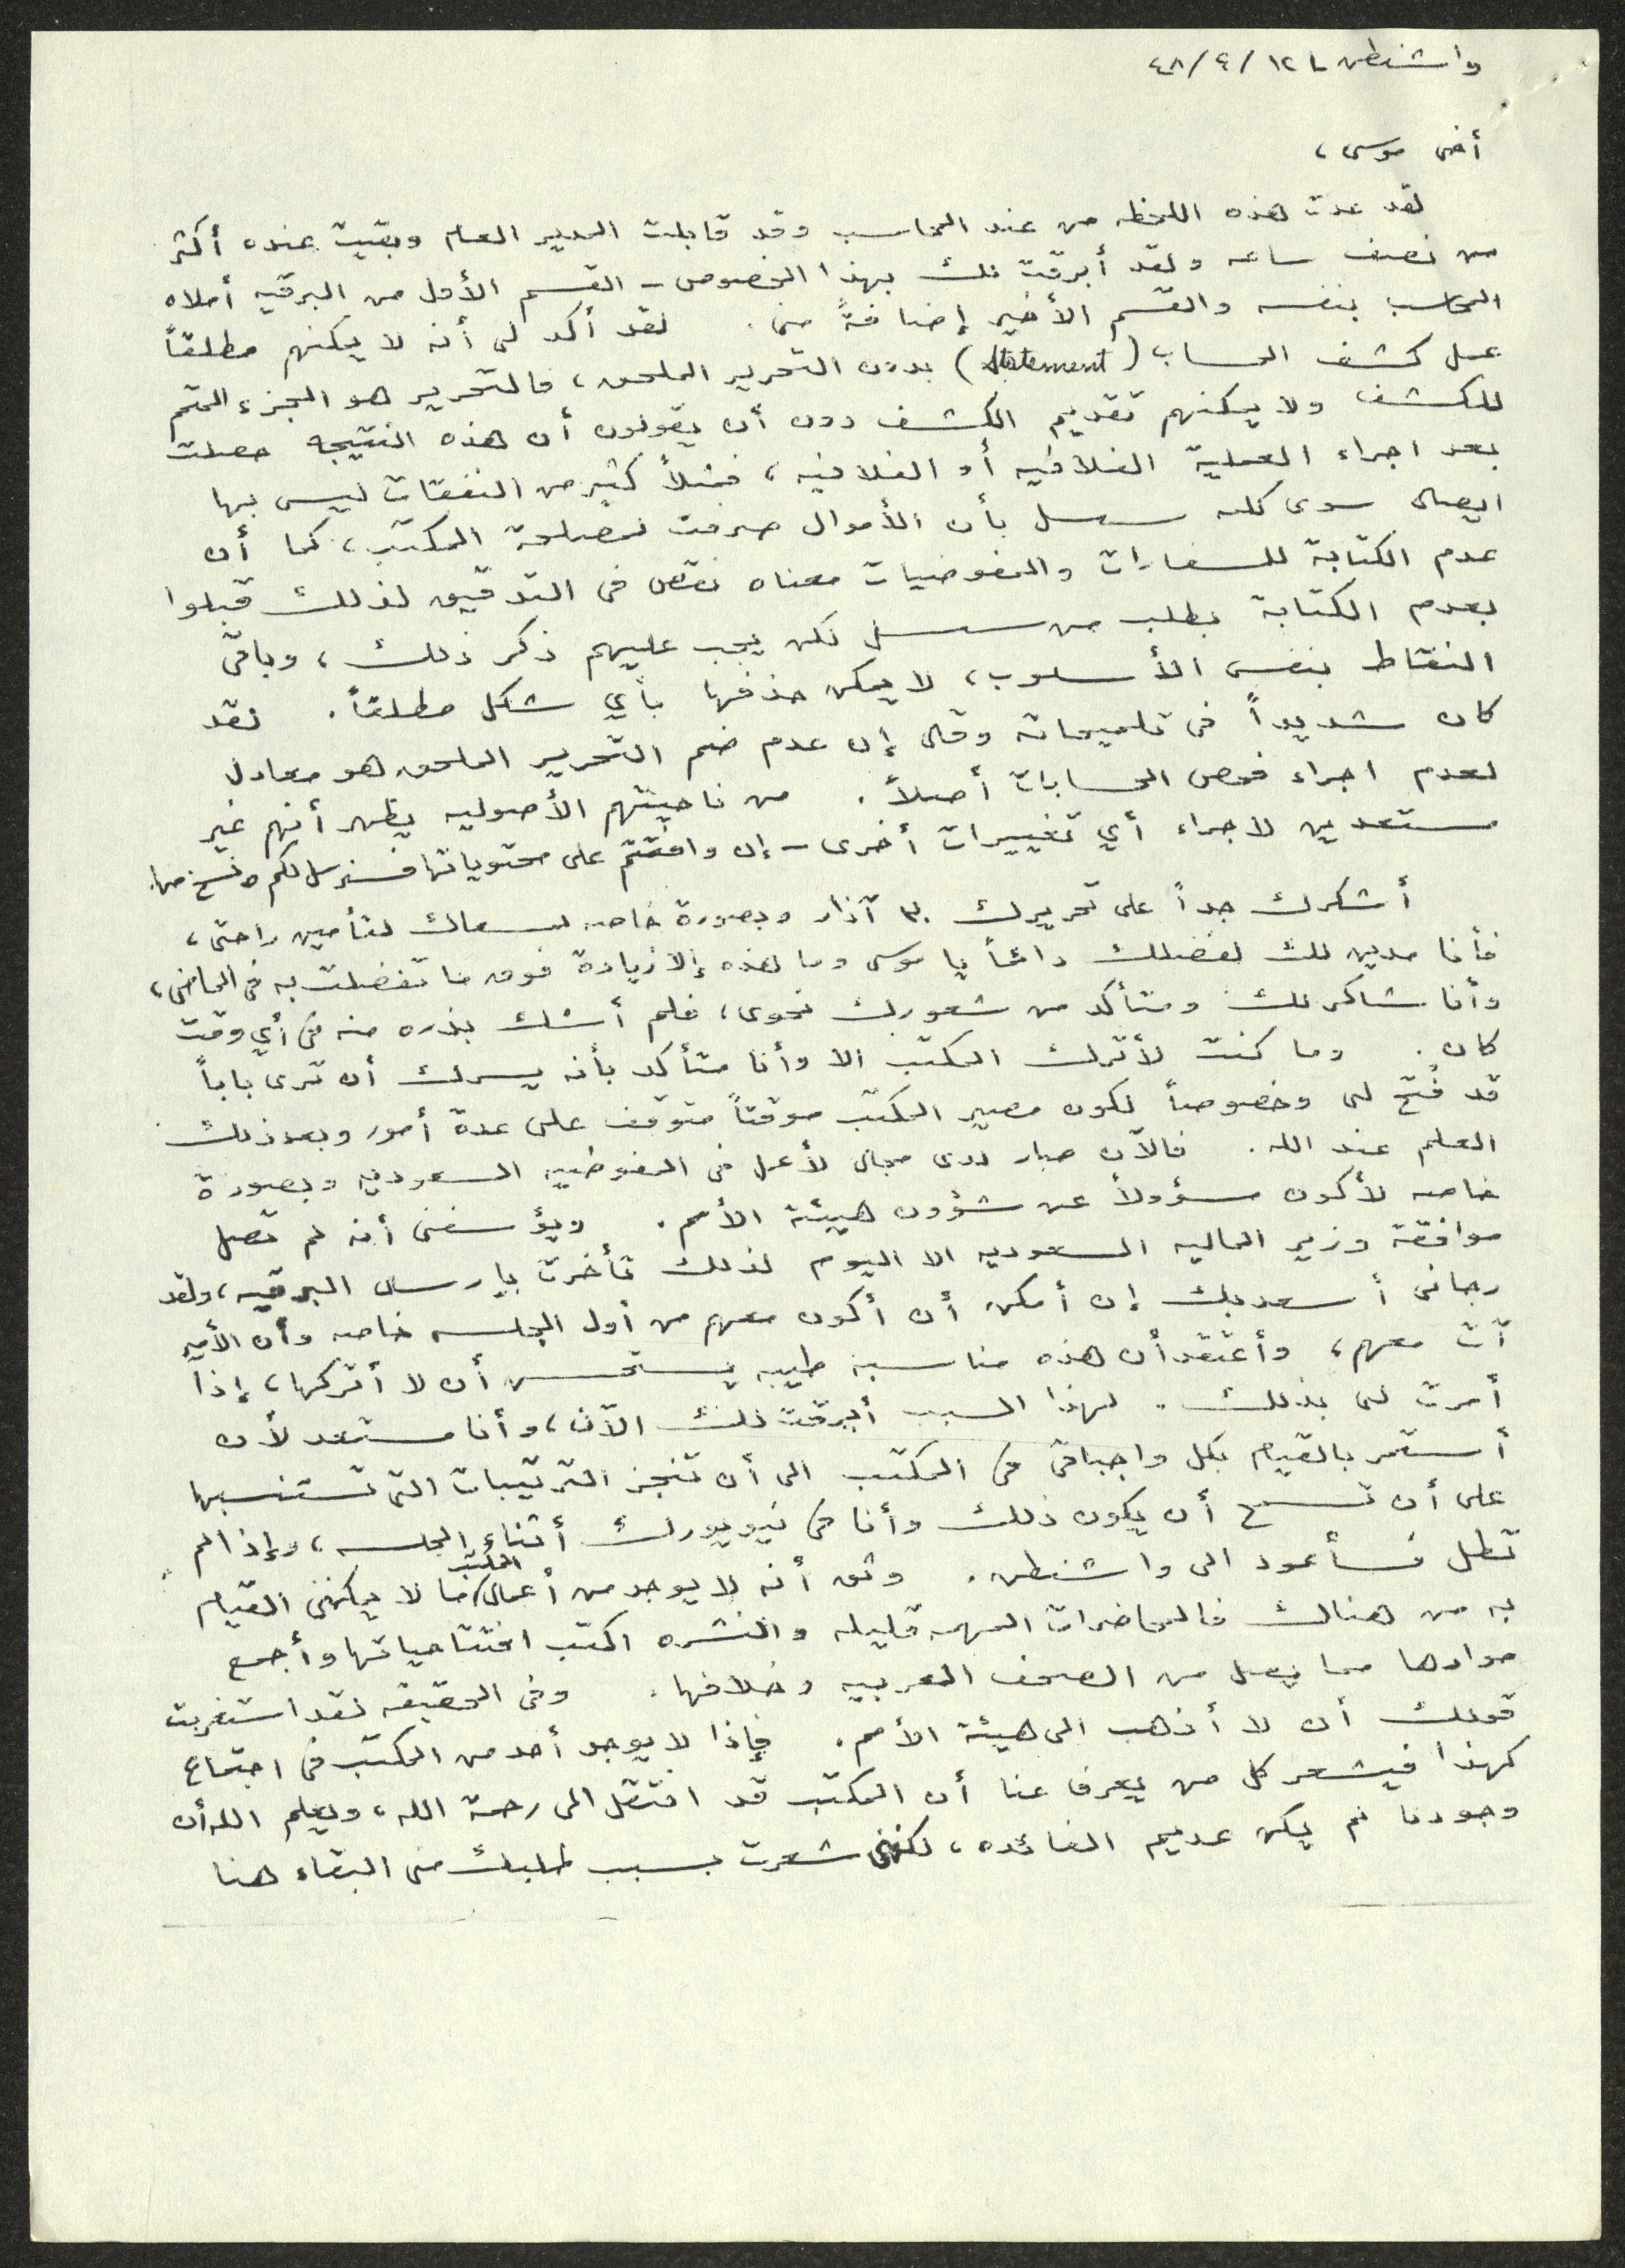 واشنطن ١٢/٤/٤٨
أخى موسى،
لقد عدت هذه اللحظه من عند المحاسب وقد قابلت المدير العام وبقيت عنده أكثر
من نصف ساعه ولقد أبرقت لك بهذا الخصوص - القسم الأول من البرقيه أملاه
المحاسب بنفسه والقسم الأخير إضافةً منى. لقد أكد لى أنه لا يمكنهم مطلقاً
عمل كشف الحساب (statement) بدون التحرير الملحق، فالتحرير هو الجزء المتم
للكشف ولا يمكنهم تقديم الكشف دون أن يقولون أن هذه النتيجه حصلت
بعد اجراء العملية الفلانيه أو الفلانيه، فمثلاً كثير من النفقات ليس بها
ايصال سوى كلمه سيسل بأن الأموال صرفت لمصلحة المكتب، كما أن
عدم الكتابة للسفارات والمفوضيات معناه نقص فى التدقيق لذلك قبلوا
بعدم الكتابة بطلب من سيسل لكن يجب عليهم ذكر ذلك، وباقى
النقاط بنفس الأسلوب، لا يمكن حذفها بأي شكل مطلقاً. لقد
كان شديداً فى تلميحاته وقال إن عدم ضم التحرير الملحق هو معادل
لعدم اجراء فحص الحسابات أصلاً. من ناحيتهم الأصوليه يظهر أنهم غير
مستعدين لاجراء أي تغييرات أخرى - إن وافقتم على محتوياتها فسنرسل لكم ٥ نسخ منها.
أشكرك جداً على تحريرك ٣٠ آذار وبصورة خاصه لسعاك لتأمين راحتى،
فأنا مدين لك لفضلك دائماً يا موسى وما هذه إلا زيادة فوق ما تفضلت به فى الماضى،
وأنا شاكر لك ومتأكد من شعورك نحوى، فلم أشك بذره منه فى أي وقت
كان. وما كنت لأترك المكتب الا وأنا متأكد بأنه يسرك أن ترى باباً
قد فُتح لى وخصوصاً لكون مصير المكتب موقتاً متوقف على عدة أمور وبعد ذلك
العلم عند الله. فالآن صار لدى مجال لأعمل فى المفوضيه السعوديه وبصورة
خاصه لأكون مسؤولاً عن شؤون هيئة الأمم. ويؤسفنى أنه لم تصل
موافقة وزير الماليه السعوديه الا اليوم لذلك تأخرت بإرسال البرقيه، ولقد
رجانى أسعد بك إن أمكن أن أكون معهم من أول الجلسه خاصه وأن الأمير
آت معهم، وأعتقد أن هذه مناسبة طيبه يستحسن أن لا أتركها، إذا
أمرت لى بذلك. لهذا السبب أبرقت لك الآن، وأنا مستعد لأن
أستمر بالقيام بكل واجباتى فى المكتب الى أن تنجز الترتيبات التى تستنسبها
على أن تسمح أن يكون ذلك وأنا فى نيويورك أثناء الجلسه، وإذا لم
تطل فسأعود الى واشنطن. وثق أنه لا يوجد من أعمال المكتب ما لا يمكننى القيام
به من هنالك فالمحاضرات المهمه قليله والنشره اكتب افتتاحياتها وأجمع
موادها مما يصل من الصحف العربيه وخلافها. وفى الحقيقه لقد استغربت
قولك أن لا أذهب الى هيئة الأمم. فإذا لا يوجد أحد من المكتب فى اجتماع
كهذا فيشعر كل من يعرف عنا أن المكتب قد انتقل الى رحمة الله، ويعلم الله أن
وجودنا لم يكن عديم الفائده، لكننى شعرت بسبب طلبك منى البقاء هنا